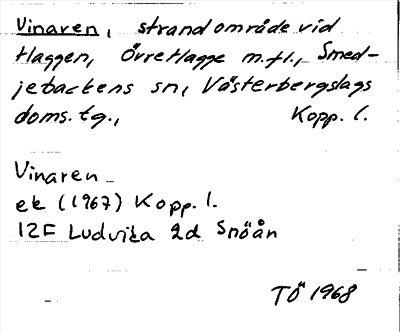 Vinaren, strandområde vid
Haggen, Övre Hagge m.fl., Smed-
jebackens sn, Västerbergslags
doms. tg., Kopp. l.
Vinaren
ek (1967) Kopp. l.
12F Ludvika 2d Snöån
TÖ 1968